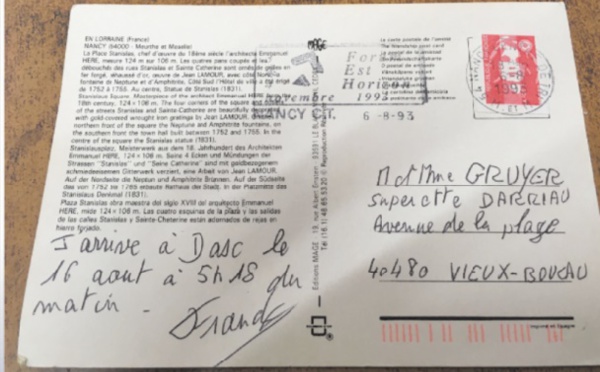 EN LORRAINE (France)
NANCY (54000 - Meurthe et Moselle)
La Place Stanislas, chef d'œuvre du 18ème siècle l'architecte Emmanuel
HERE, mesure 124 m sur 106 m. Les quatres pans coupés et les
débouchés des rues Stanislas et Sainte Catherine sont ornés de grilles en
fer forgé, rehaussé d'or, œuvre de Jean LAMOUR, avec côté Nord la
fontaine de Neptune et d'Amphitrite. Côté Sud l'Hôtel de Ville a été érigé
de 1752 à 1755. Au centre, Statue de Stanislas (1831).
Stanislaus Square. Masterpiece of the architect Emmanuel HERE
18th century, 124 × 106 m. The four corners of the square and
of the streets Stanislas and Sainte-Catherine are beautifully decorated
with gold-covered wrought iron gratings by Jean LAMOUR,
northern front of the square the Neptune and Amphitrite fountains, on
the southern front the town hall built between 1752 and 1755. In the
centre of the square the Stanislas statue (1831).
Stanislausplatz. Meisterwerk aus dem 18. Jahrhundert des Architekten
Emmanuel HERE, 124 × 106 m. Seine 4 Ecken und Mündungen der
Strassen "Stanislas" und "Seine Catherine" sind mit goldbezogenen
schmiedeeisernen Gitterwerk verziert, eine Arbeit von Jean LAMOUR.
Auf der Nordseite der Neptun und Amphitrite Brunnen. Auf der Südseite
das von 1752 bis 1755 erbaute Rathaus der Stadt. In der Platzmitte das
Stanislaus Denkmal (1831).
Plaza Stanislas obra maestra del siglo XVIII del arquitecto Emmanuel
HERE, mide 124 × 106 m. Las cuatro esquinas de la plaza y las salidas
de las calles Stanislas y Sainte-Cheterine están adornadas de rejas en
hierro forjado.
J'arrive à Dasc le
16 aout à 5h18 du
matin -
Franck
MAGE
Editions MAGE - 19, rue Albert Einstein - 93591 LE BLANC MESNIL
Tél. (16.1) 48.65.53.20
la carte postale de l'amitié
the friendship post card
For
Est
Horizon
novembre 1993
NANCY C.T. 6-8-93
M et Mme GRUYER
superette DARRIAU
Avenue de la plage
40480 VIEUX-BOUCAU